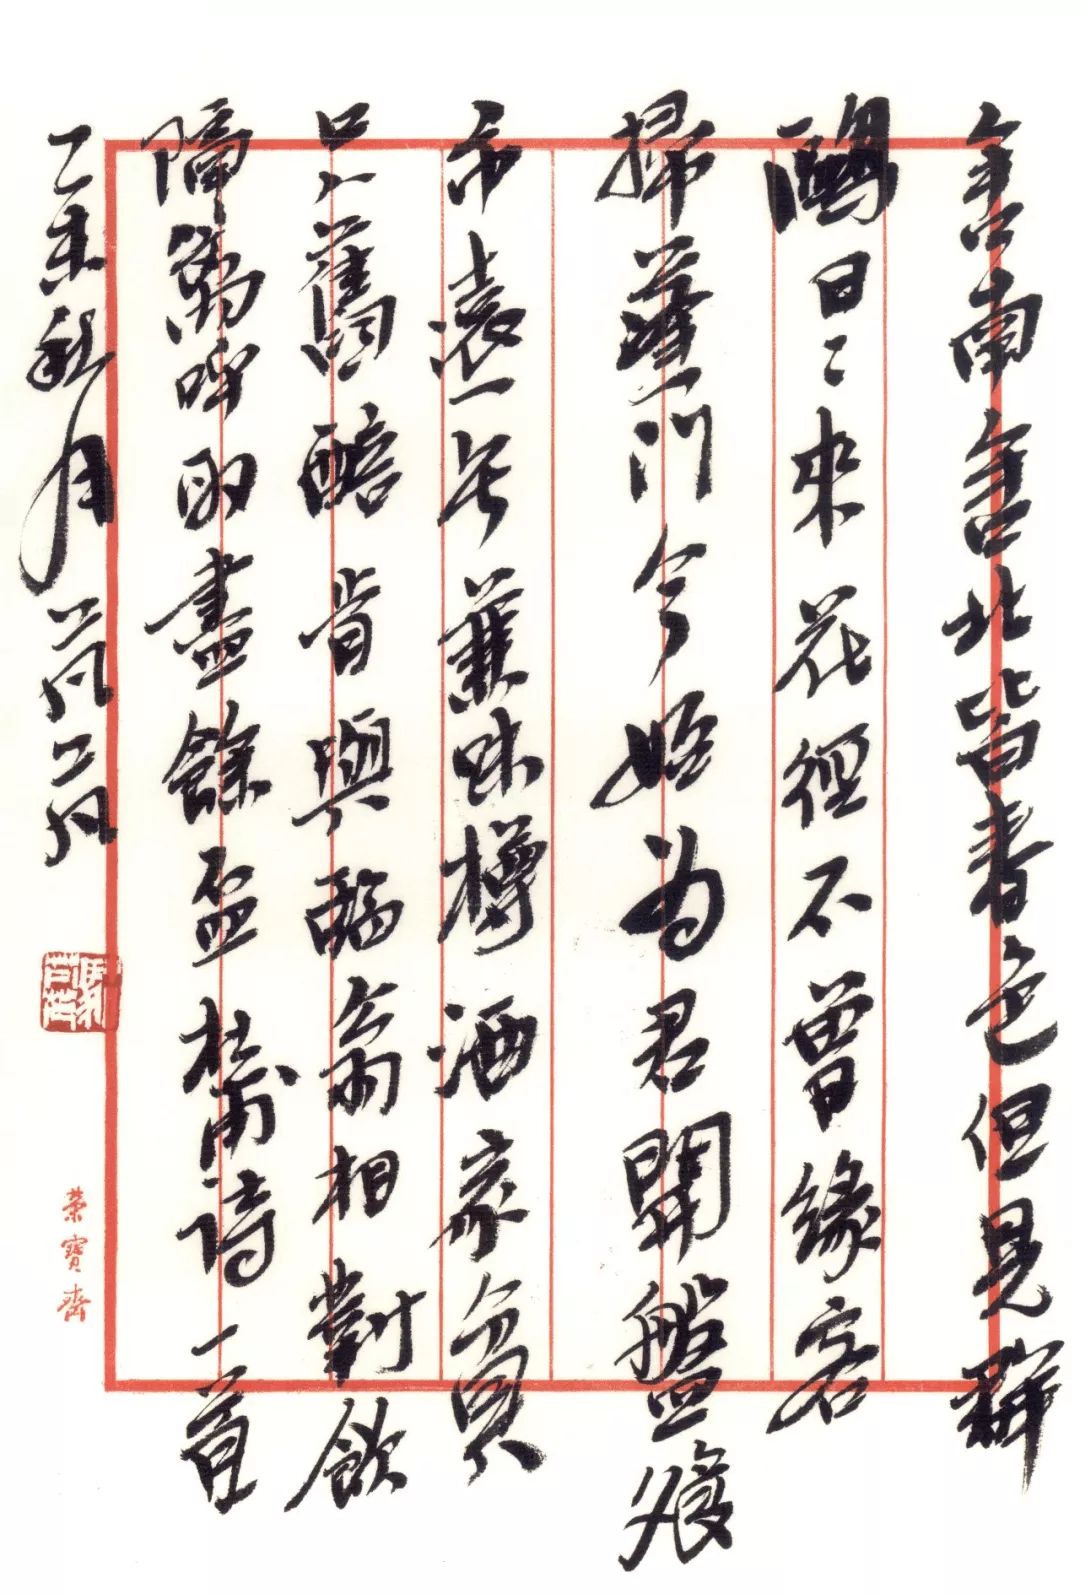 舍南舍北皆春色但見群
鷗日〻來花徑不曾緣客
掃蓬門今始為君開盤飧
市遠無兼味樽酒家貧
只舊醅肯與鄰翁相對飲
隔籬呼取盡餘盃杜甫詩一首
乙未秋月
榮寶齋